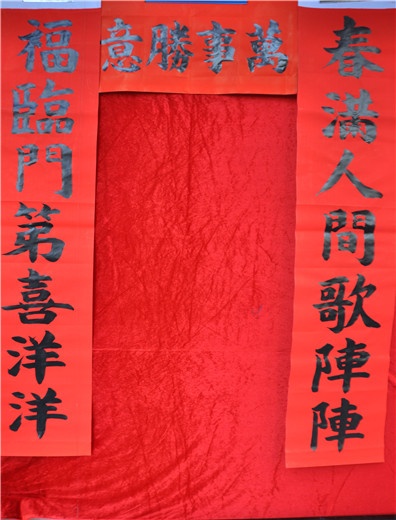 春滿人間歌陣陣
福臨門第喜洋洋
萬事勝意